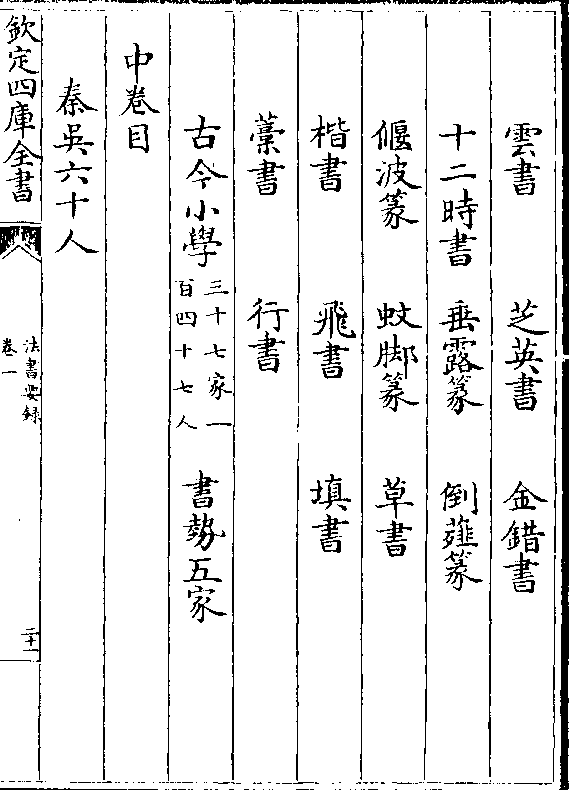 雲書　芝英書　金錯書
十二時書　垂露篆　倒薤篆
偃波篆　蚊脚篆　草書
楷書　飛書　填書
藁書　行書
古今小學三十七家一百四十七人　書勢五家
中卷目
秦吳六十人
欽定四庫全書　法書要録卷一　二十一